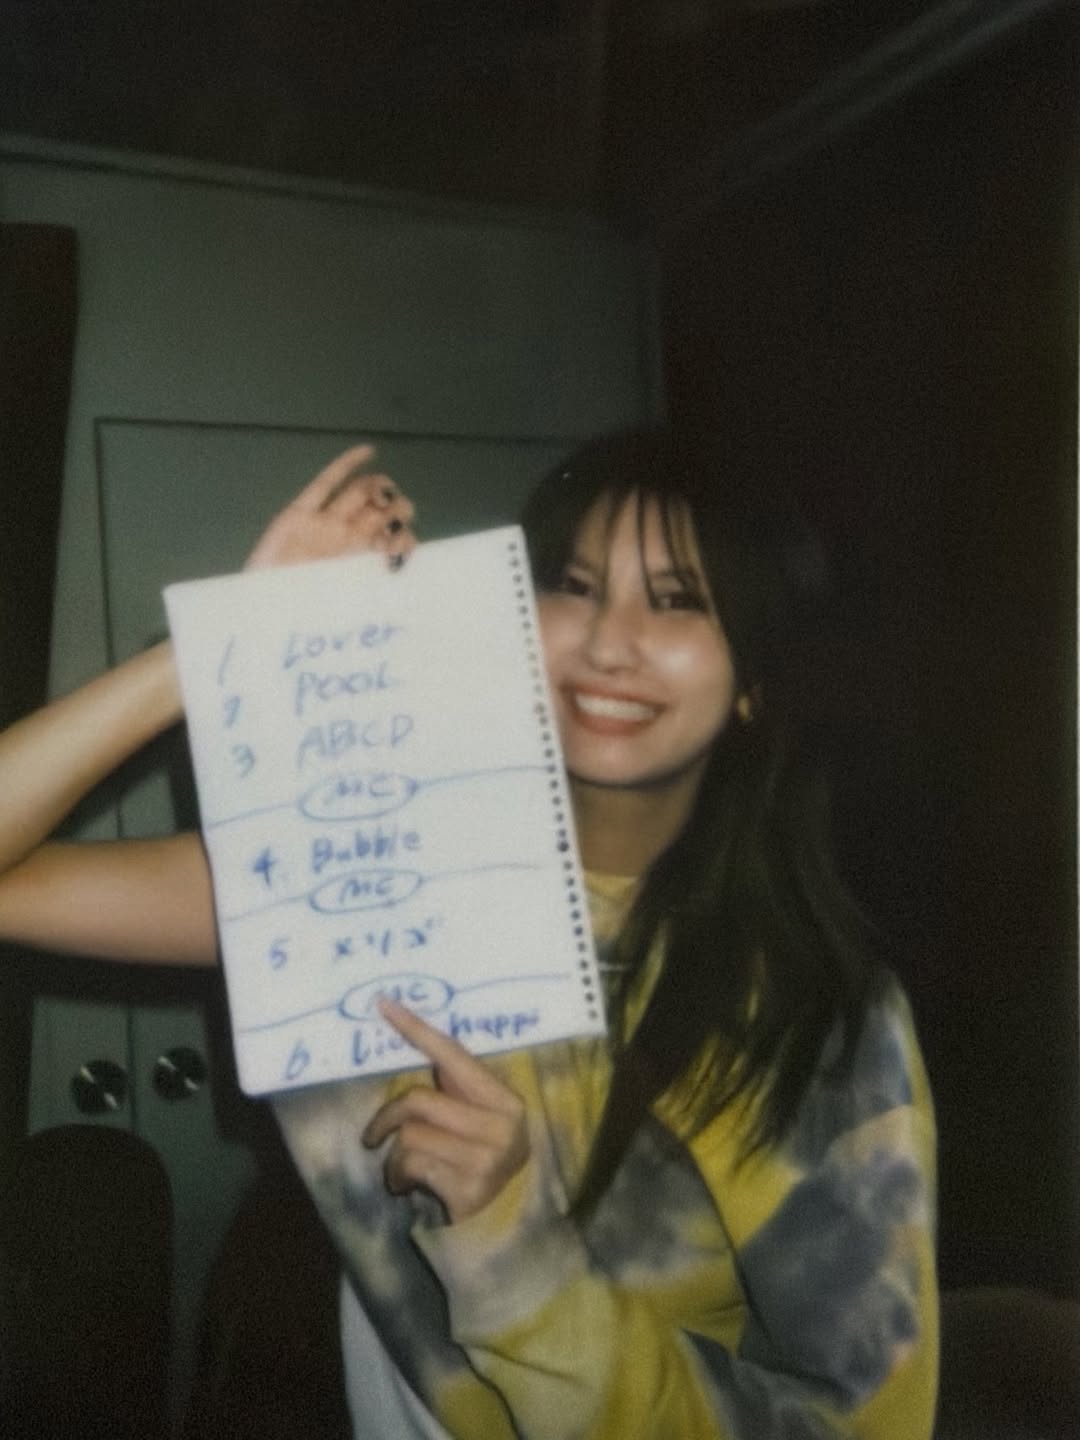 1 Lover
2 POOL
3 ABCD
MC
4. Bubble
MC
5
MC
6. happi